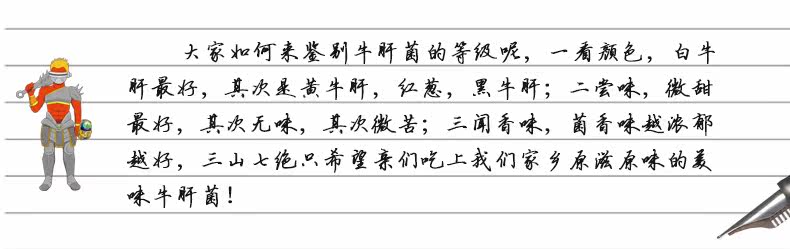 大家如何来鉴别牛肝菌的等级呢，一看颜色，白牛
肝最好，其次是黄牛肝，红葱，黑牛肝；二尝味，微甜
最好，其次无味，其次微苦；三闻香味，菌香味越浓郁
越好，三山七绝只希望亲们吃上我们家乡原滋原味的美
味牛肝菌！